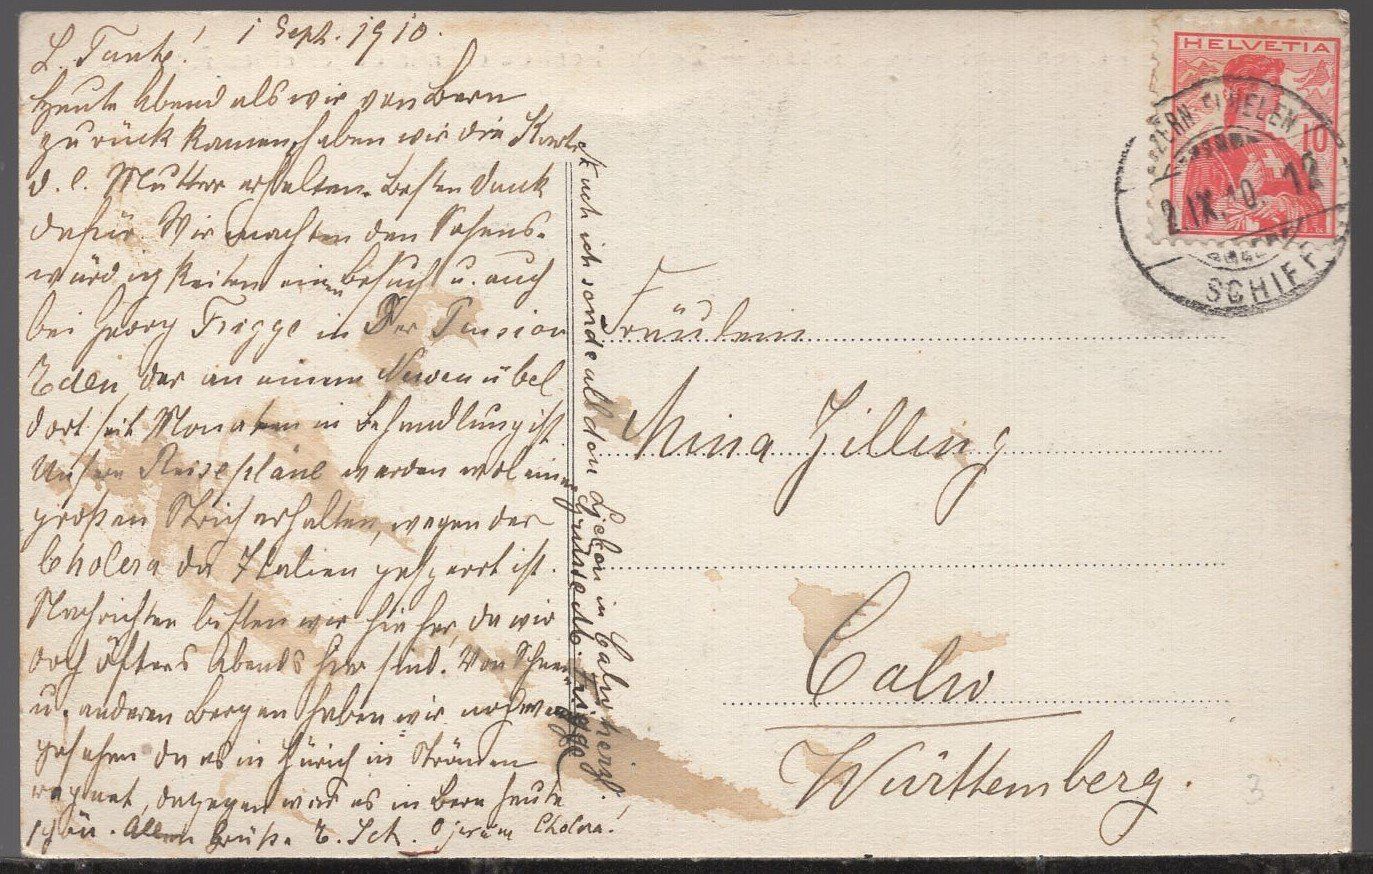 1 Sept. 1910.
L. Tante!
Heute Abend als wir von Bern
zurück kamen, haben wir die Karte
d. l. Mutter erhalten. Besten Dank
dafür. Wir machten den Sehens-
würdigkeiten einen Besuch u. auch
bei Georg Frigge in der Pension
Eden, der an einem
dort seit Monaten in Behandlung ist.
Unsere Reisepläne werden wol einen
großen Strich erhalten, wegen der
Cholera da Italien gesperrt ist.
Nachrichten bitten wir hierher, da wir
doch öfters Abends hier sind. Von Schnee
u. anderen Bergen haben wir noch wenig
gesehen da es in Zürich in Strömen
regnet, dagegen war es in Bern heute
schön. Allen Grüße E. Sch. Cholera!
Auch ich sende all den Lieben in Calw herzl.
Grüsse M. Frigge
Fräulein
Mina Zilling
Calw
Württemberg.
HELVETIA
10
LUZERN-FLÜELEN
2.IX.10. 12
SCHIFF
3